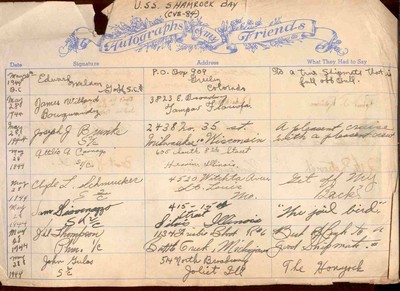 U.S.S. SHAMROCK BAY
(CVE-84)
Autographs of my Friends
Date Signature Address What They Had to Say
1944 Edward Graham P.O. Box 909 Greeley Colorado To a true Shipmate that is full of
May 28 1944 James Willard 3823 E. Broadway Tampa Florida
May 28 1944 Joseph J. S/C 2438 No. 35 st. Milwaukee Wisconsin A pleasant cruise with a pleasant
May 28 1944 Attilio S/C 605 South 8th Street Herrin, Illinois
May 28 1944 Clyde L. Schmucker S/C 4520 Wichita Ave St. Louis Mo. Get Off My Back
May 28 1944 S/C 415-15th Street Illinois "The jail bird"
May 28 1944 Thompson P.M. 1/C 1134 Battle Creek, Michigan Best of Luck to a Good Shipmate
May 28 1944 John Gulas S/C 514 North Broadway Joliet Ill The